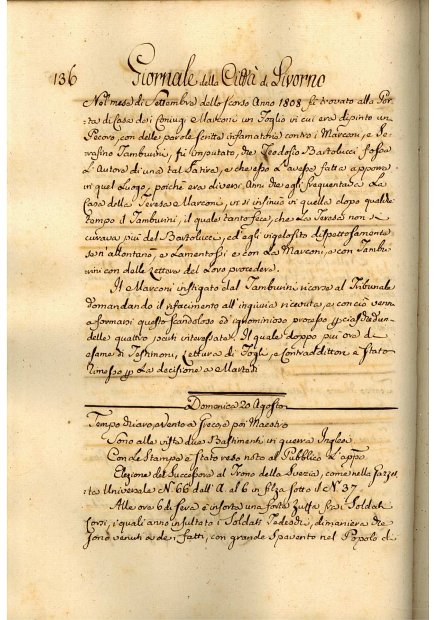 136 Giornale della Città di Livorno
Nel mese di Settembre dello scorso Anno 1808 fù trovato alla Por-
ta di Casa dei Coniugi Marconi un Foglio in cui era dipinto un
Pecoro, con delle parole scritte infamatorie contro i Marconi, e Se-
rafino Tamburini, fù imputato, che Teodosio Bartolucci fosse
L'Autore di una tal Satira, e che esso l'avesse fatta apporre
in quel Luogo, poiche era diversi Anni che egli frequentava La
Casa della Teresa Marconi, vi si insinuò in quella dopo qualche
tempo il Tamburini, il quale tanto fece, che La Teresa non si
curava piu del Bartolucci, ed egli vigoloso dispettosamente
se n'allontanò, e Lamentossi e con La Marconi, e con Tambu-
rini con delle Lettere del Loro procedere.
Il Marconi instigato dal Tamburini ricorse al Tribunale
domandando il rifacimento all'ingiuria ricevuta, e con ciò venne
a formarsi questo scandoloso ed ignominioso processo
delle quattro parti interessate. Il quale doppo piu ore di
esame di Testimoni, Lettura di Fogli, e Contradditori è stato
rimesso La decisione a Martedi
Domenica 20 Agosto
Tempo chiaro, vento a Greco, poi Maestro
Sono alla vista due Bastimenti in guerra Inglesi
Con Le Stampe è stato reso noto al Pubblico L'appre
Elezione del Successore al Trono della Svezia, come nella Gazze-
ta Universale N. 66 dell'A. al 6 in filza sotto il N. 37.
Alle ore 6 di sera è insorta una forte zuffa fra i Soldati
Corsi, i quali anno insultato i Soldati Tedeschi, di maniera che
sono venuti a dei fatti, con grande Spavento nel Popolo di